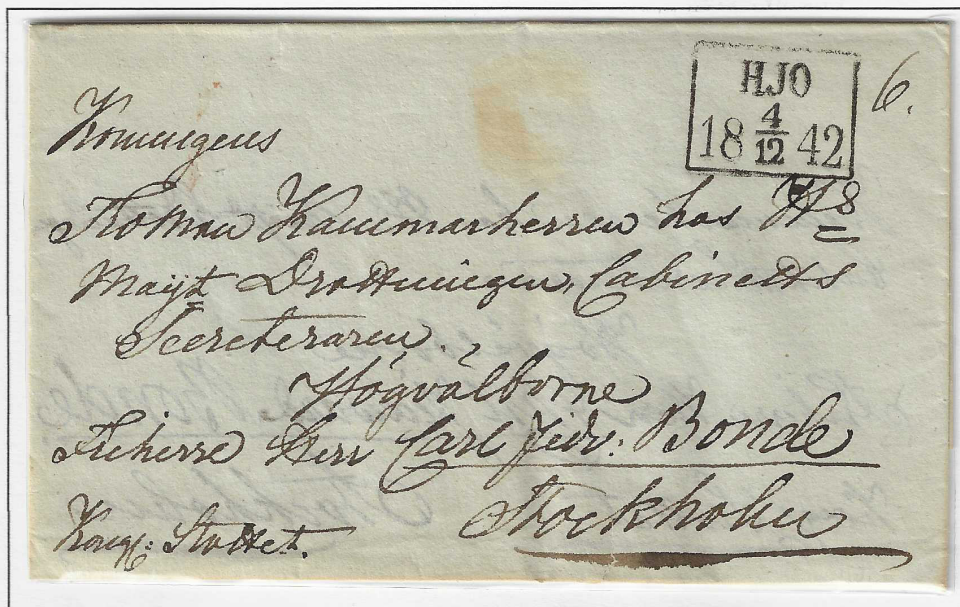 HJO
18 4/12 42
6.
Konungens
Tromau Kammarherren hos H8
Majt Drottningen, Cabinetts
Secreteraren,
Högvälborne
Friherre Herr Carl Jedv. Bonde
Stockholm
Kongl: Slottet.